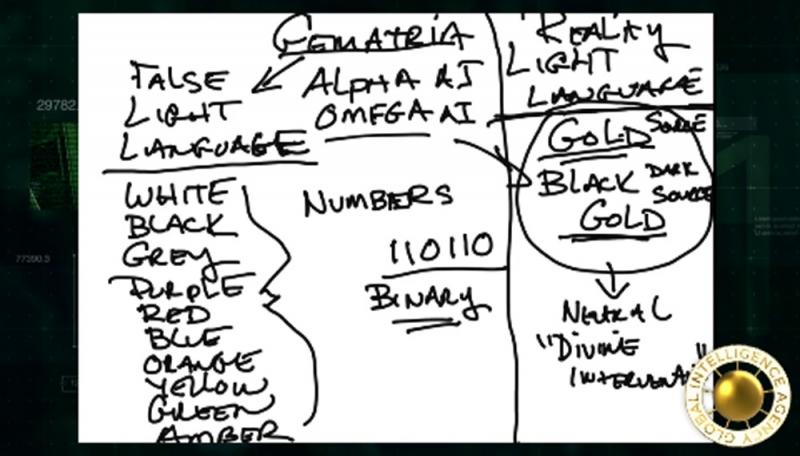 GEMATRIA
FALSE
LIGHT
LANGUAGE
ALPHA AI
OMEGA AI
WHITE
BLACK
GREY
PURPLE
RED
BLUE
ORANGE
YELLOW
GREEN
AMBER
NUMBERS
110110
BINARY
"REALITY
LIGHT
LANGUAGE
GOLD SOURCE
BLACK DARK
SOURCE
GOLD
NEUTRAL
"DIVINE
GLOBAL INTELLIGENCE AGENCY
29782.
77390.3